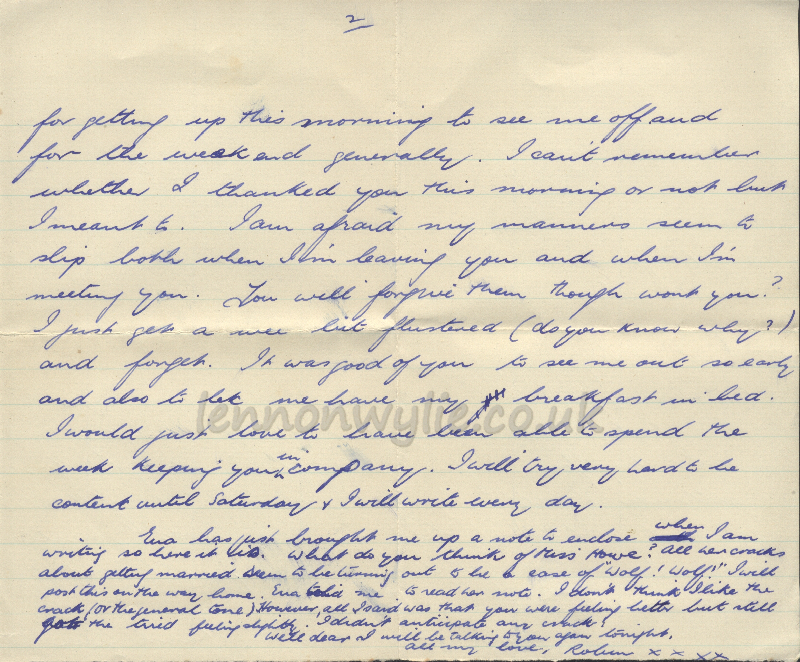 2
for getting up this morning to see me off and
for the weekend generally. I can't remember
whether I thanked you this morning or not but
I meant to. I am afraid my manners seem to
slip both when I'm leaving you and when I'm
meeting you. You will forgive them though wont you?
I just get a wee bit flustered (do you know why?)
and forget. It was good of you to see me out so early
and also to let me have my breakfast in bed.
lennonwylie.co.uk
I would just love to have been able to spend the
week keeping you in company. I will try very hard to be
content until Saturday & I will write every day.
Ena has just brought me up a note to enclose when I am
writing so here it is. What do you think of Miss Howe? All her cracks
about getting married seem to be turning out to be a case of "Wolf! Wolf!" I will
post this on the way home. Ena told me to read her note. I don't think I like the
crack (or the general tone) However, all I said was that you were feeling better but still
the tired feeling slightly. I didn't anticipate any crack!
Well dear I will be talking to you again tonight.
all my love, Robin x x x x